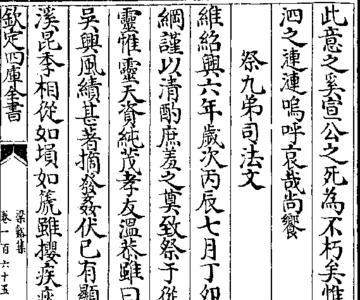 此意之奚宣公之死為不朽矣惟
泗之漣漣嗚呼哀哉尚饗
祭九弟司法文
維紹興六年歲次丙辰七月丁
綱謹以清酌庶羞之奠致祭于從
靈惟靈天資純茂孝友溫恭雖曰
吳興風績甚著摘發姦伏已有顯
溪昆季相從如塤如篪雖攖疾
欽定四庫全書
梁谿集
卷一百六十五